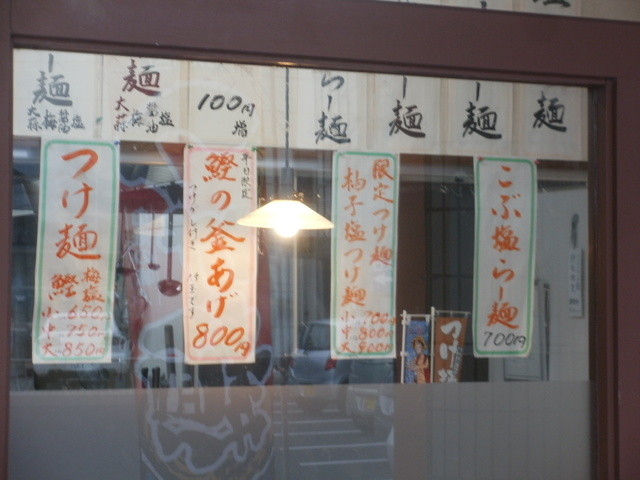 ー麺
大蒜 梅 醤油 塩
麺
大蒜 梅 醤油 塩
100円増
らー麺
ー麺
ー麺
麺
つけ麺
鰹 梅塩
小 650円
中 750円
大 850円
平日限定
鰹の釜あげ
800円
限定つけ麺
柚子塩つけ麺
小 700円
中 800円
大 900円
こぶ塩らー麺
700円